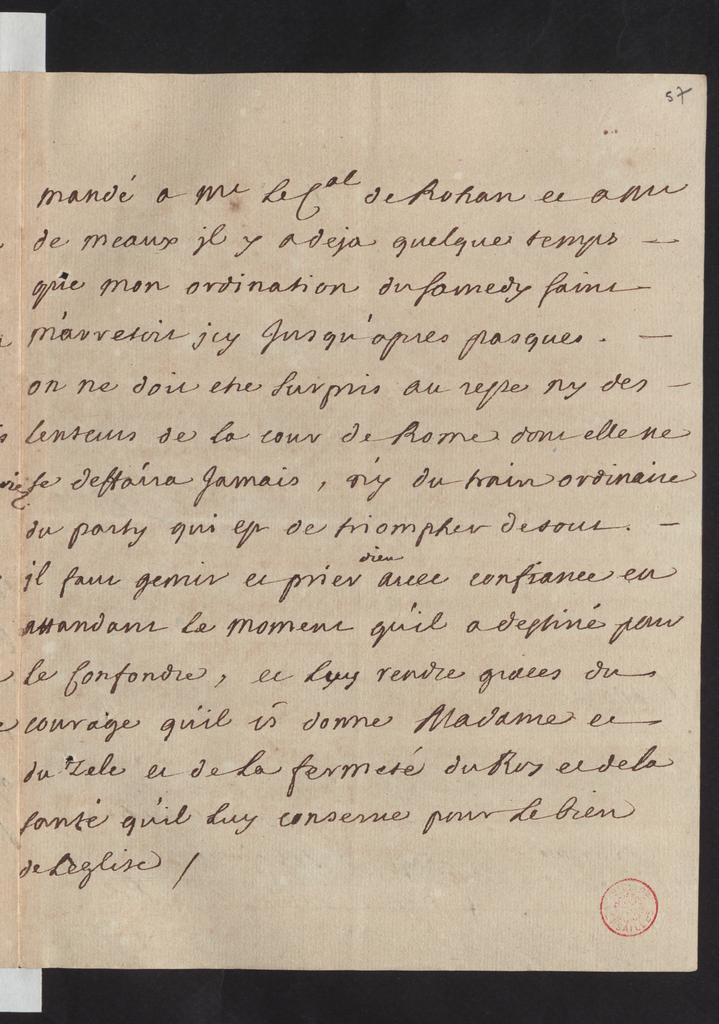 57
mandé a Mr le Cal de Rohan et a Mr
de meaux jl y a deja quelque temps —
que mon ordination du samedy saint
m'arretoit jcy Jusqu'apres pasques. —
on ne doit etre surpris au reste ny des —
lenteurs de la cour de Rome dont elle ne
se deffaira Jamais, n'y du train ordinaire
du party qui est de triompher de tout. —
jl faut gemir et prier dieu avec confiance en
attandant le moment qu'il a destiné pour
le confondre, et luy rendre graces du
courage qu'il donne Madame et
du Zele et de la fermeté du Roy et de la
santé qu'il luy conserve pour le bien
de Leglise /